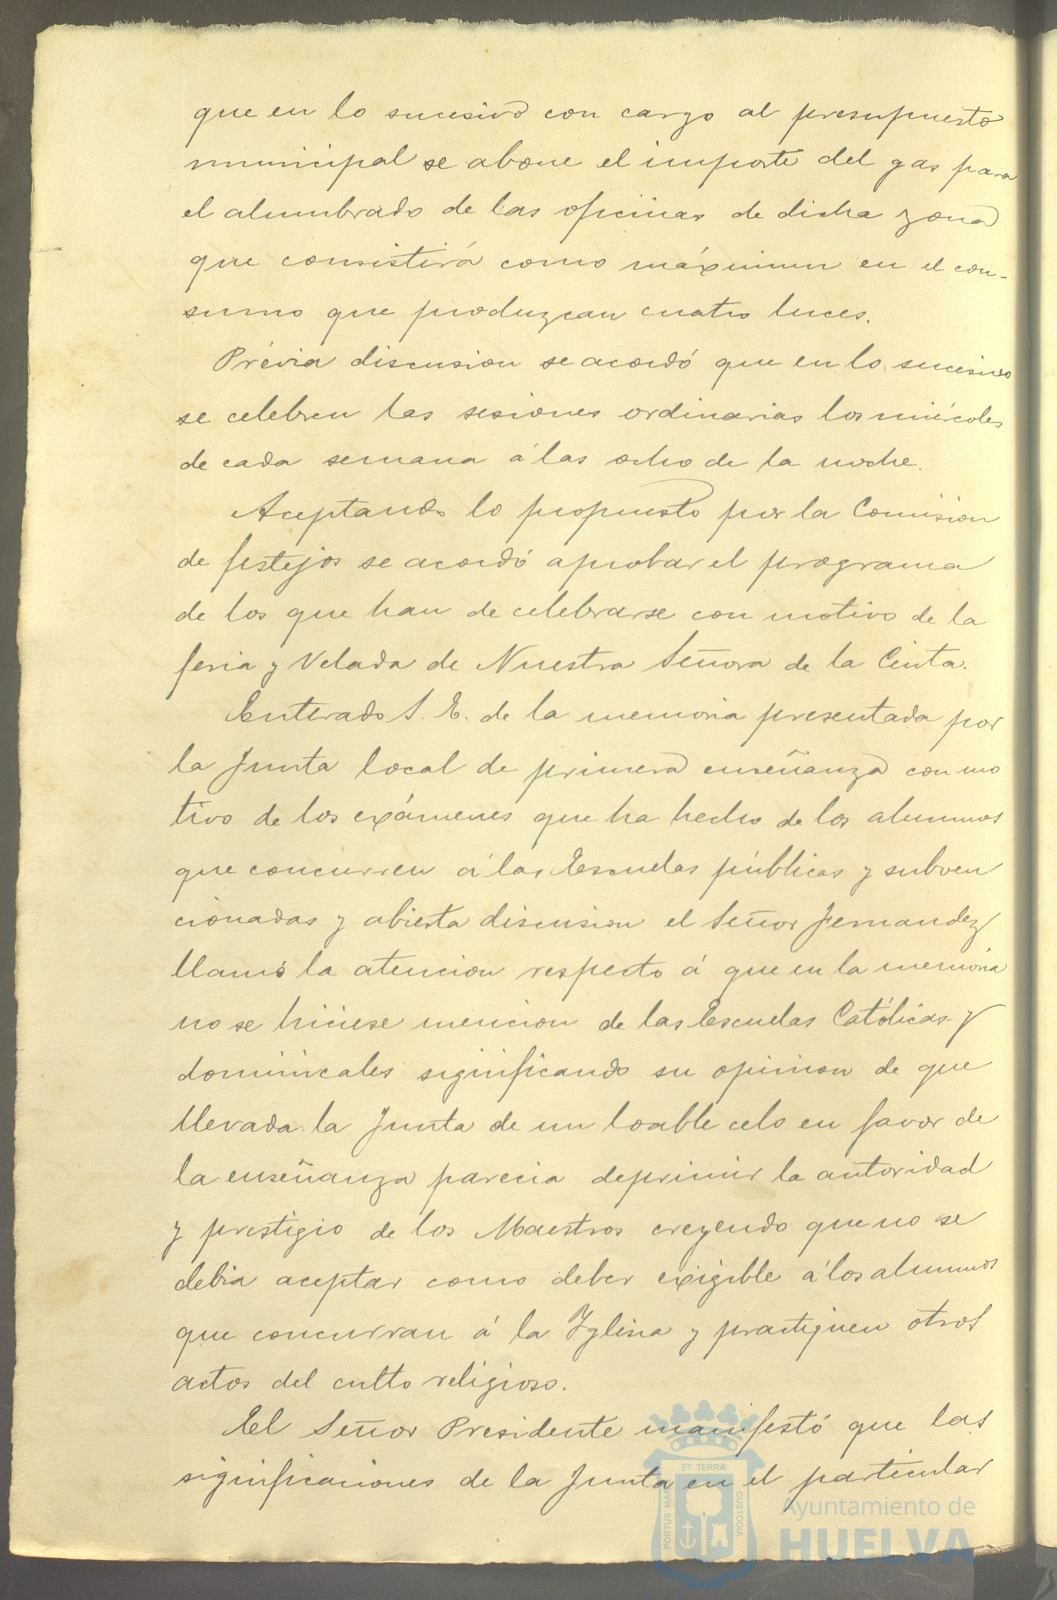 que en lo sucesivo con cargo al presupuesto
municipal se abone el importe del gas para
el alumbrado de las oficinas de dicha zona
que consistirá como máximun en el con-
sumo que produzcan cuatro luces.
Prévia discusion se acordó que en lo sucesivo
se celebren las sesiones ordinarias los miércoles
de cada semana á las ocho de la noche.
Aceptando lo propuesto por la Comision
de festejos se acordó aprobar el programa
de los que han de celebrarse con motivo de la
feria y Velada de Nuestra Señora de la Cinta.
Enterado S. E. de la memoria presentada por
la Junta local de primera enseñanza con mo
tivo de los exámenes que ha hecho de los alumnos
que concurren á las Escuelas públicas y subven
cionadas y abierta discusion el Señor Fernandez
llamó la atencion respecto á que en la memoria
no se hiciese mencion de las Escuelas Católicas y
dominicales significando su opinion de que
llevada la Junta de un loable celo en favor de
la enseñanza parecia deprimir la autoridad
y prestigio de los Maestros creyendo que no se
debia aceptar como deber exigible á los alumnos
que concurran á la Iglesia y practiquen otros
actos del culto religioso.
El Señor Presidente manifestó que las
significaciones de la Junta en el particular
PORTUS MARIS ET TERRÆ CUSTODIA
Ayuntamiento de
HUELVA